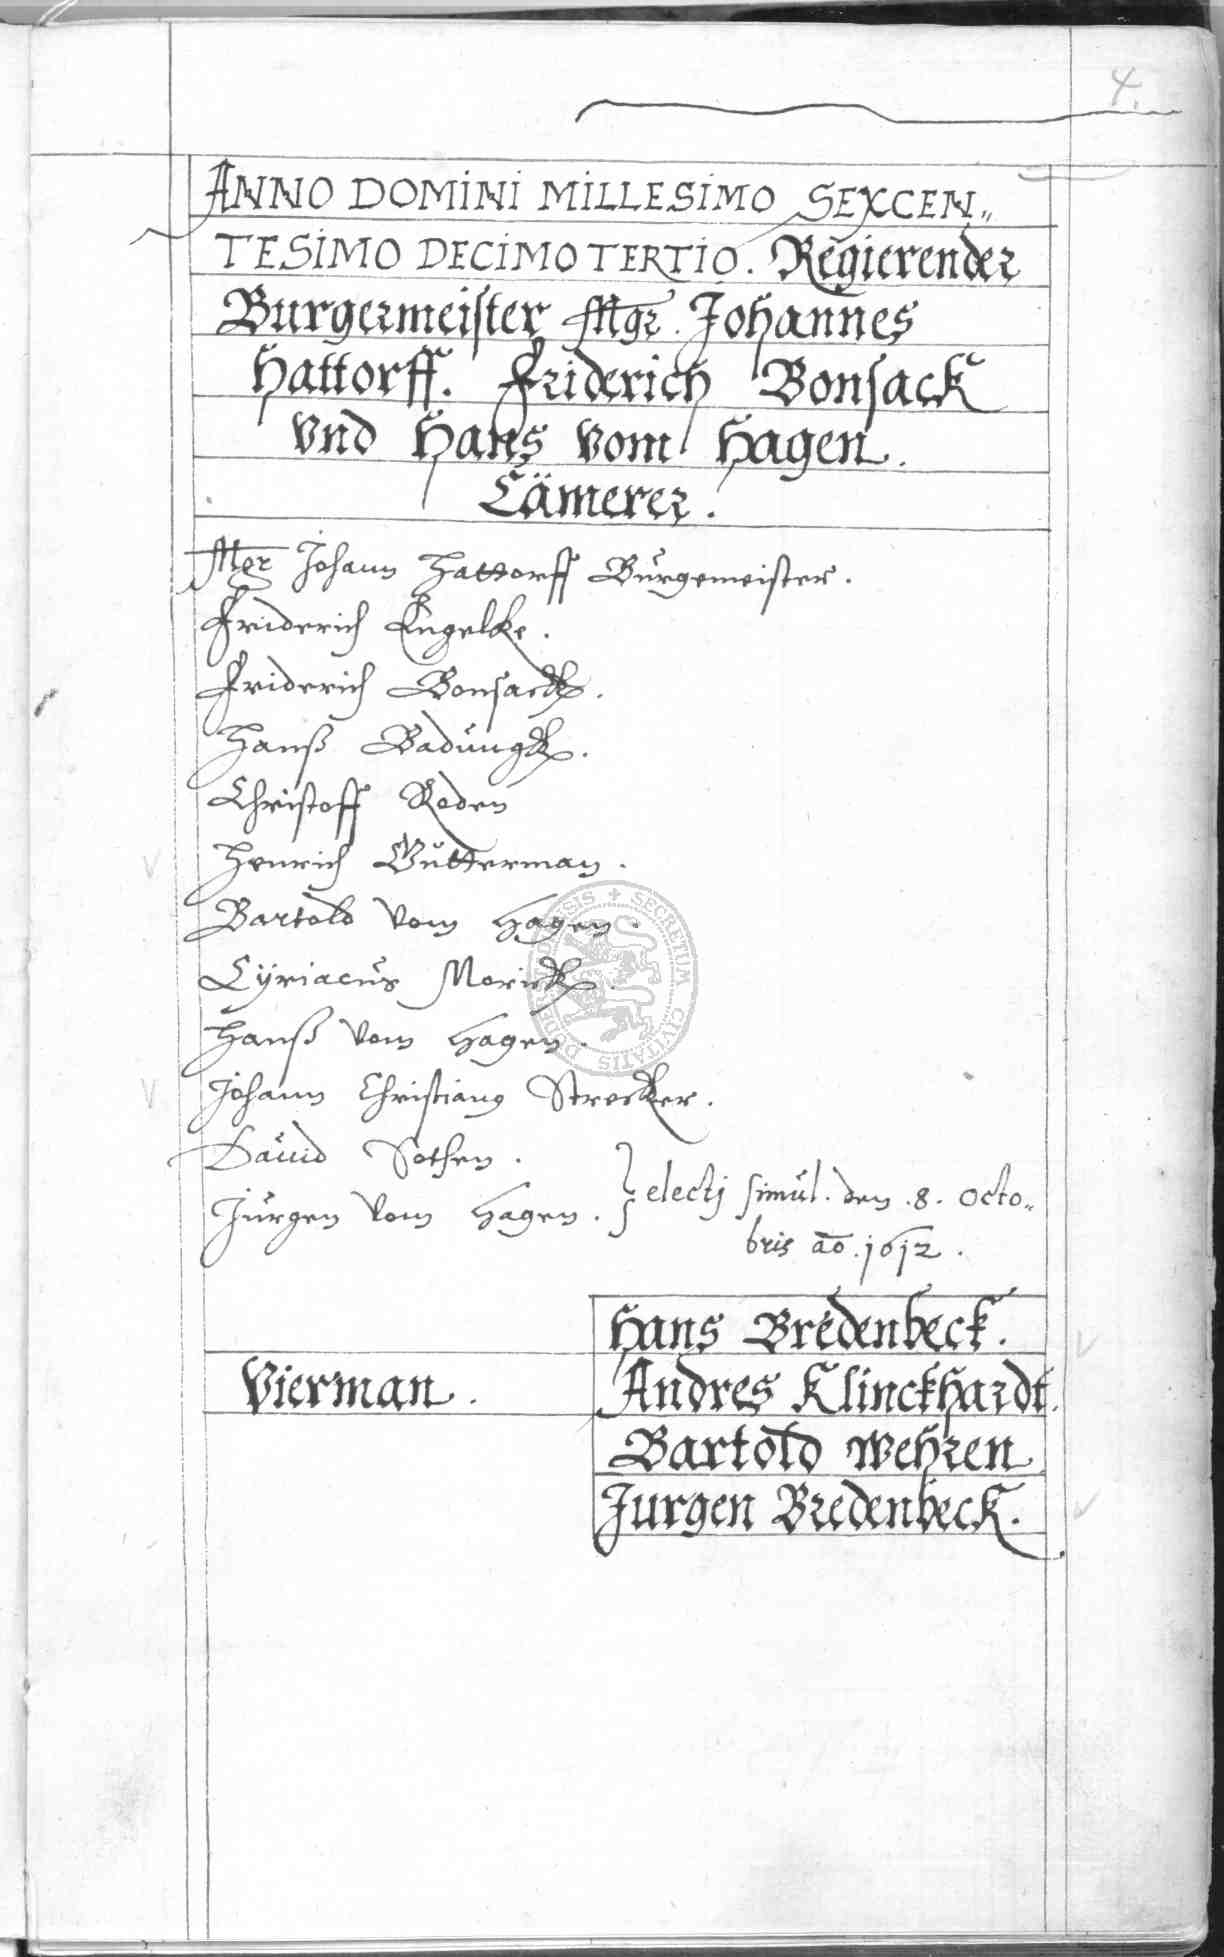 4.
ANNO DOMINI MILLESIMO SEXCEN„
TESIMO DECIMO TERTIO. Regierender
Burgermeister Mgr. Johannes
Hattorff. Friderich Bonsack
vnd Hans vom Hagen.
Cämerer.
Mgr Johann Hattorff Bürgemeister.
Friderich Engelke.
Friderich Bonsack.
Hanß Badungk.
Christoff Roden
Henrich Gütterman.
Bartold vom Hagen.
Cÿriacus Morick.
Hanß vom Hagen.
Johann Christiang Strecker.
Dauid Sothen.
Jürgen vom Hagen. } electj simul. den .8. octo„
bris ao. 1612.
Hans Bredenbeck.
Vierman. Andres Klinckhardt.
Bartold Wehren
Jurgen Bredenbeck.
SECRETUM CIVITATIS